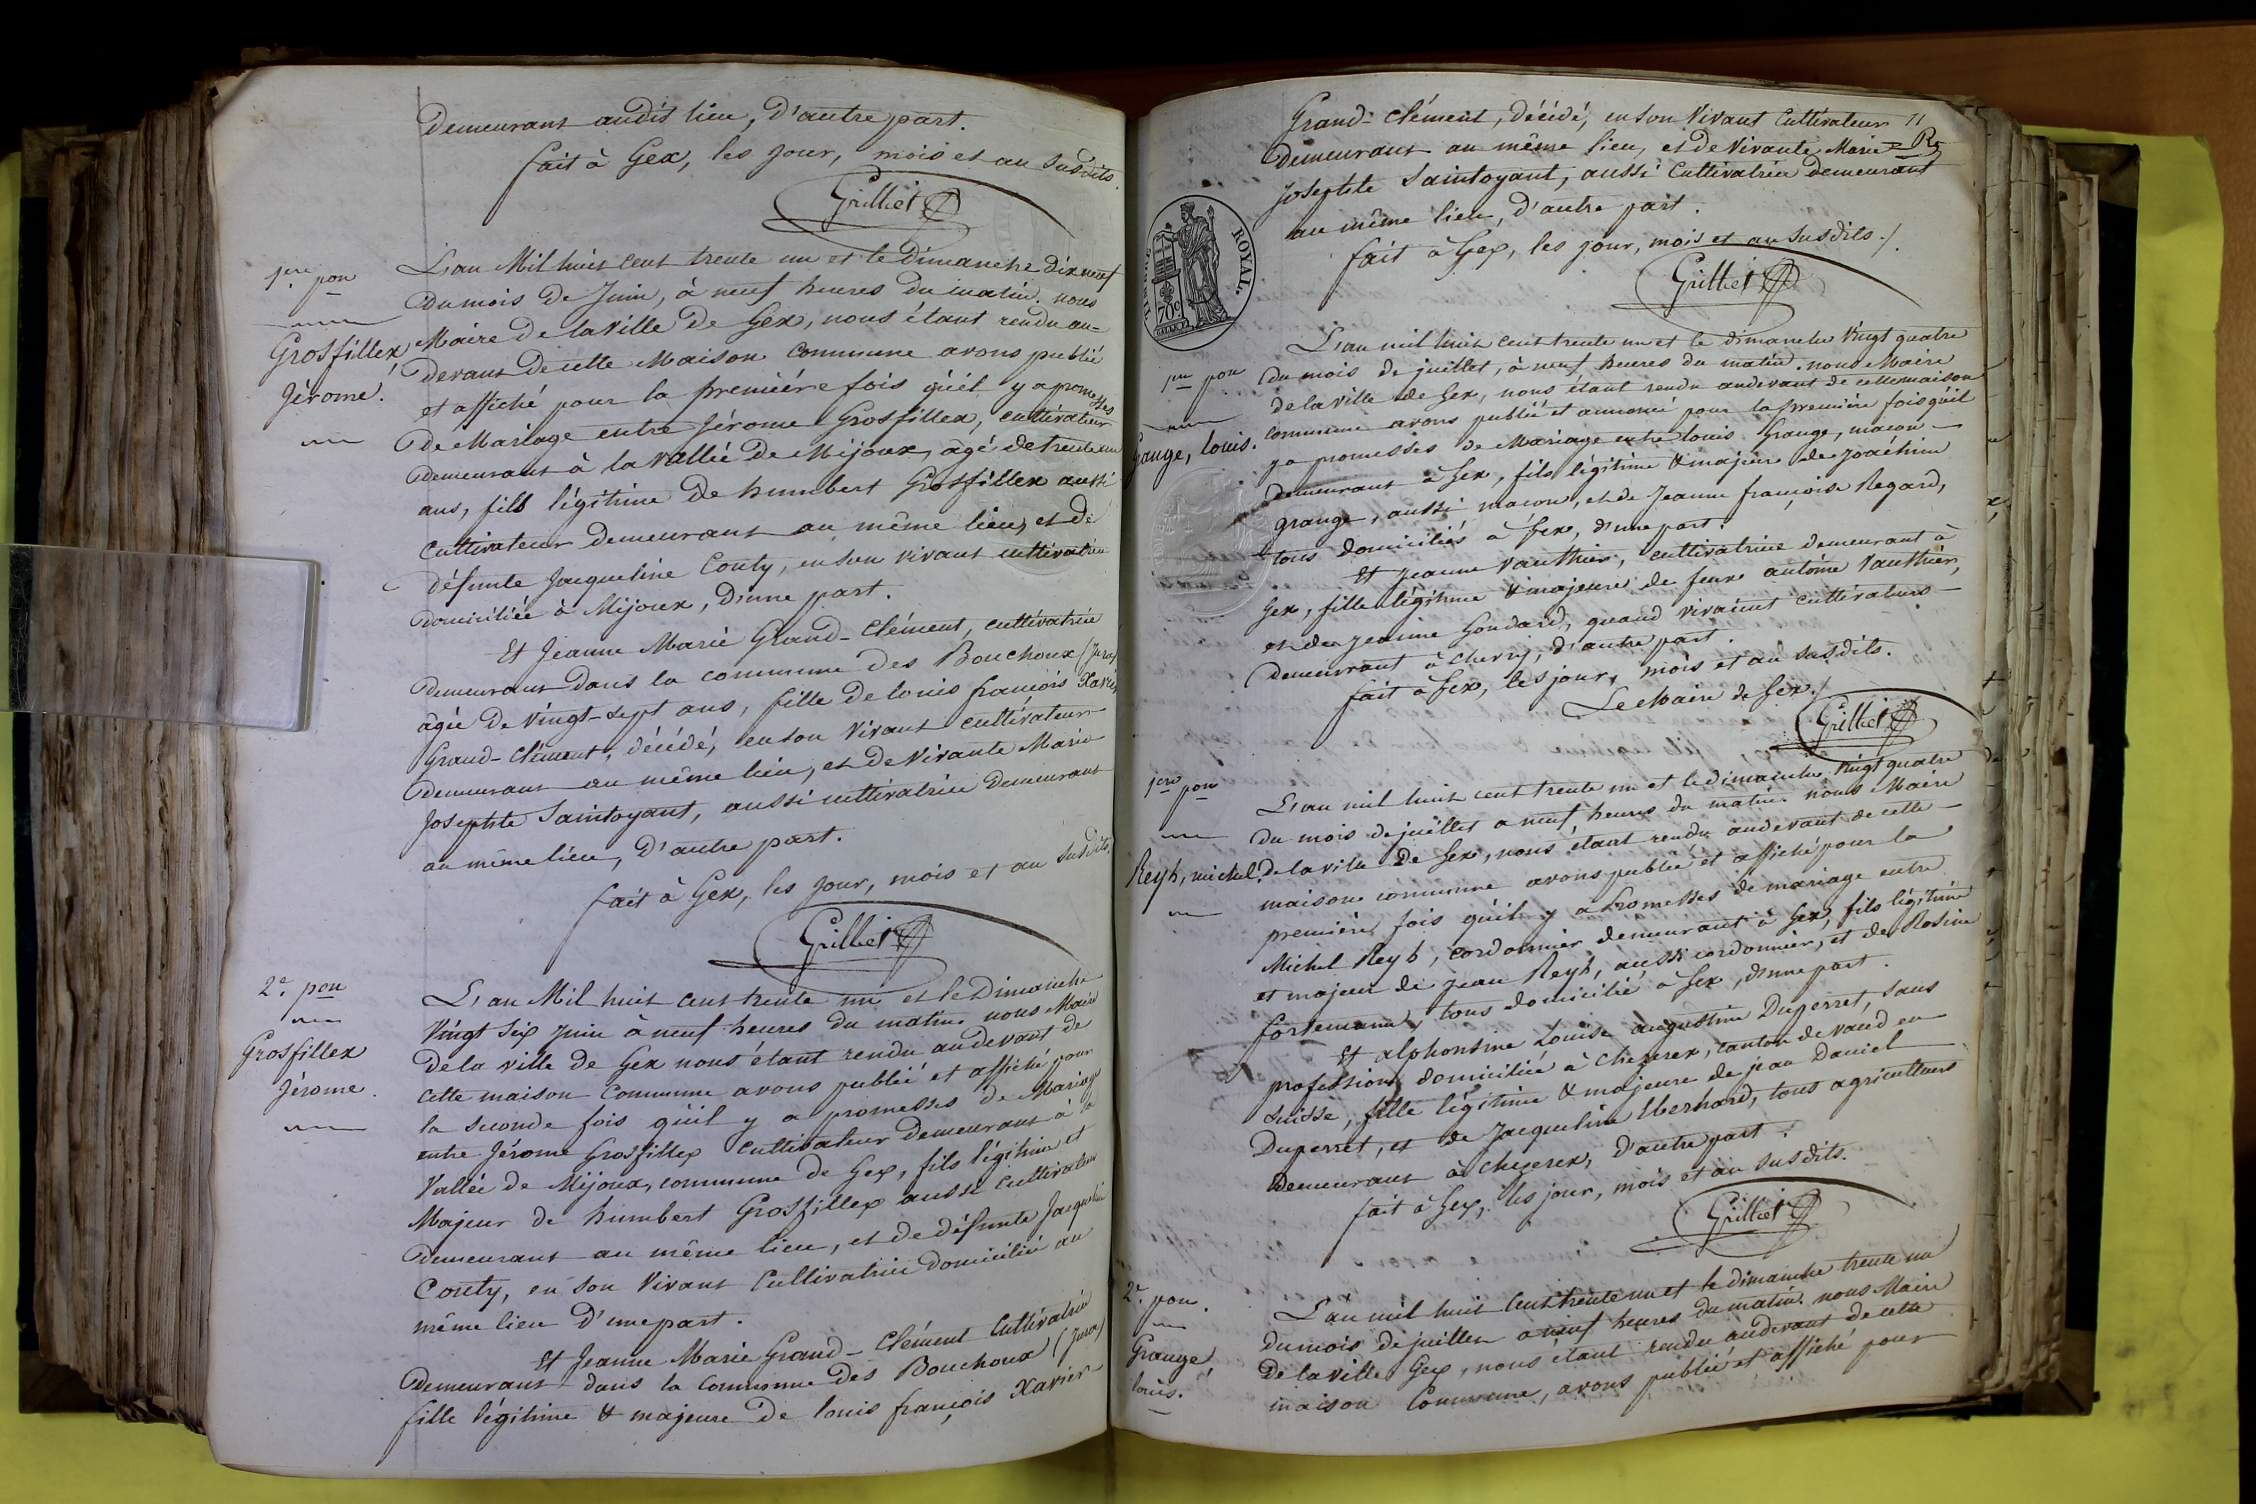 Demeurant audit lieu, d'autre part.
fait à Gex, les jour, mois et an susdits.
Grilliet
1ere pon
Grosfillex,
Jérome.
L'an Mil huit cent trente un et le Dimanche dix neuf
du mois de Juin, à neuf heures du matin. nous
Maire de la Ville de Gex, nous étant rendu au-
devant de cette Maison Commune avons publié
et affiché pour la première fois qu'il y a promesses
de Mariage entre Jérome Grosfillex, cultivateur
demeurant à la vallée de Mijoux, âgé de trente un
ans, fils légitime de humbert Grosfillex aussi
Cultivateur demeurant au même lieu, et de
défunte Jacqueline Couty, en son vivant cultivatrice
domiciliée à Mijoux, d'une part.
Et Jeanne Marie Grand-Clément, cultivatrice
demeurant dans la commune des Bouchoux (Jura)
âgée de vingt-sept ans, fille de louis françois Xavier
Grand-Clément, décédé, en son vivant cultivateur
demeurant au même lieu, et de vivante Marie
Josephte Saintoyant, aussi cultivatrice demeurant
au même lieu, d'autre part.
fait à Gex, les jour, mois et an susdits.
Grilliet
2e. pon
Grosfillex
Jérome.
L'an Mil huit cent trente un et le Dimanche
Vingt six juin à neuf heures du matin. nous Maire
De la ville de Gex nous étant rendu au devant de
cette maison Commune avons publié et affiché pour
la seconde fois qu'il y a promesses de Mariage
entre Jérome Grosfillex Cultivateur demeurant à la
Vallée de Mijoux, commune de Gex, fils légitime et
Majeur de humbert Grosfillex aussi cultivateur
demeurant au même lieu, et de défunte Jacqueline
Couty, en son vivant Cultivatrice domiciliée au
même lieu d'une part.
Et Jeanne Marie Grand-Clément Cultivatrice
demeurant dans la Commune des Bouchoux (Jura)
fille légitime & majeure de louis françois Xavier
Grand-Clément, décédé, en son Vivant Cultivateur 11
demeurant au même lieu, et de Vivante Marie
Josephte Saintoyant, aussi Cultivatrice demeurant
au même lieu, d'autre part.
fait à Gex, les jour, mois et an susdits./.
Grilliet
TIMBRE ROYAL.
70c
1ere pon
Gange, louis.
L'an mil huit cent trente un et le dimanche vingt quatre
du mois de juillet, à neuf heures du matin. nous Maire
de la ville de Gex, nous étant rendu au devant de cette maison
commune avons publié et annoncé pour la première fois qu'il
y a promesses de Mariage entre louis Grange, macon
demeurant à Gex, fils légitime & majeur de joachim
grange, aussi macon, et de Jeanne françoise Regard,
tous domiciliés à Gex, d'une part.
Et Jeanne Vauthier, cultivatrice demeurant à
Gex, fille légitime & majeure de feux antoine Vauthier,
et de jeanne Goudard, quand vivaient cultivateurs
demeurant à Chevry, d'autre part.
fait à Gex, les jour, mois et an susdits.
Le Maire de Gex./
Grilliet
1ere pon
Reyb, michel.
L'an mil huit cent trente un et le dimanche vingt quatre
du mois de juillet a neuf heures du matin nous Maire
de la ville de Gex, nous étant rendu au devant de cette
maison commune avons publié et affiché pour la
première fois qu'il y a promesses de mariage entre
Michel Reyb, cordonnier demeurant à Gex, fils légitime
et majeur de jean Reyb, aussi cordonnier, et de Rosine
forlemann, tous domicilié à Gex, d'une part.
Et alphonsine Louise augustine Duperret, sans
profession, domiciliée à Cheserex, canton de vaud en
suisse, fille légitime & majeure de jean Daniel
Duperret, et de Jacqueline Ebernard, tous agriculteurs
demeurant à Cheserex, d'autre part.
fait à Gex, les jour, mois et an susdits.
Grilliet
2e. pon.
Grange,
louis.
L'an mil huit Cent trente un et le dimanche trente un
du mois de juillet a neuf heures du matin. nous Maire
De la ville Gex, nous étant rendu au devant de cette
maison Commune, avons publié et affiché pour